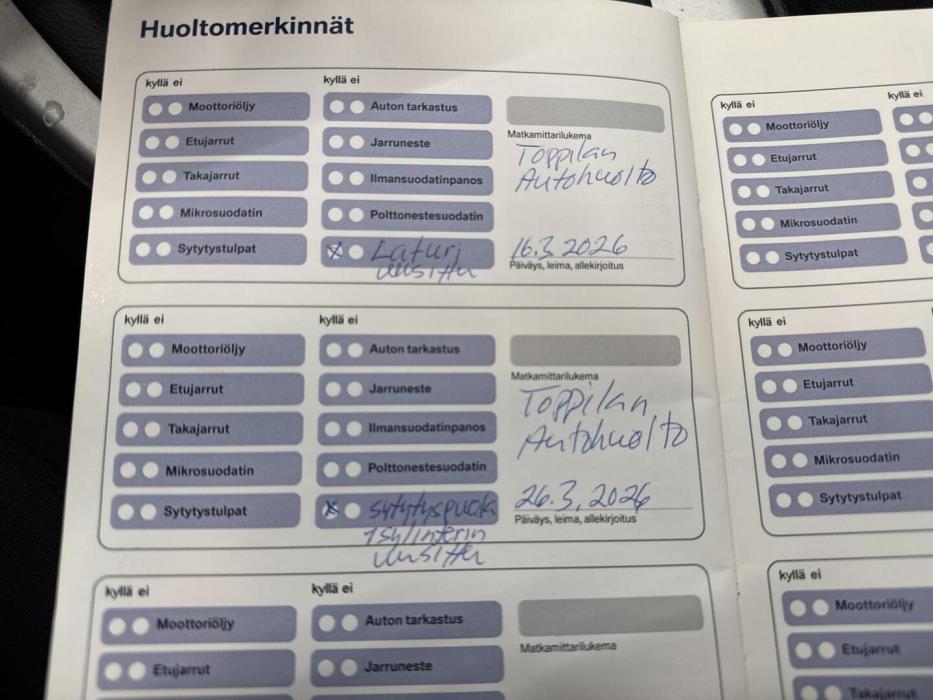 Huoltomerkinnät
kyllä ei
kyllä ei
Moottoriöljy
Auton tarkastus
Etujarrut
Jarruneste
Matkamittarilukema
Takajarrut
Ilmansuodatinpanos
Toppilan
Autohuolto
Mikrosuodatin
Polttonestesuodatin
Sytytystulpat
Laturi
uusittu
16.3.2026
Päiväys, leima, allekirjoitus
kyllä ei
kyllä ei
Moottoriöljy
Auton tarkastus
Etujarrut
Jarruneste
Matkamittarilukema
Takajarrut
Ilmansuodatinpanos
Toppilan
Autohuolto
Mikrosuodatin
Polttonestesuodatin
Sytytystulpat
sytytyspuola
1 sylinterin
uusittu
26.3.2026
Päiväys, leima, allekirjoitus
kyllä ei
kyllä ei
Moottoriöljy
Auton tarkastus
Etujarrut
Jarruneste
Matkamittarilukema
kyllä ei
kyllä ei
Moottoriöljy
Etujarrut
Takajarrut
Mikrosuodatin
Sytytystulpat
kyllä ei
Moottoriöljy
Etujarrut
Takajarrut
Mikrosuodatin
Sytytystulpat
kyllä ei
Moottoriöljy
Etujarrut
Takajarrut